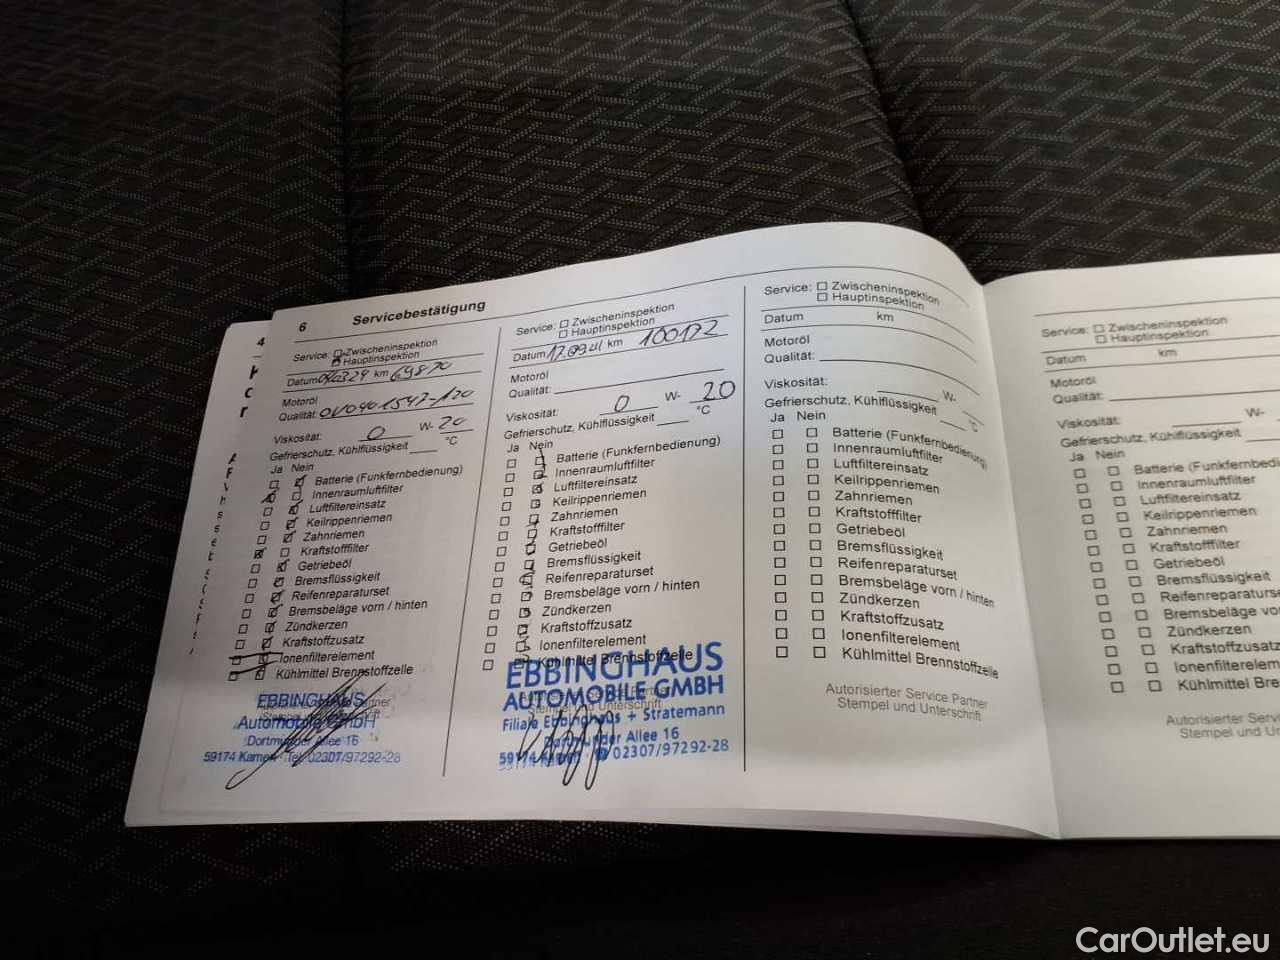 6 Servicebestätigung
Service: Zwischeninspektion
Hauptinspektion
Datum km 69870
Motoröl
Qualität: OVO401547-120
Viskosität: 0 W-20
Gefrierschutz, Kühlflüssigkeit °C
Ja Nein
Batterie (Funkfernbedienung)
Innenraumluftfilter
Luftfiltereinsatz
Keilrippenriemen
Zahnriemen
Kraftstofffilter
Getriebeöl
Bremsflüssigkeit
Reifenreparaturset
Bremsbeläge vorn / hinten
Zündkerzen
Kraftstoffzusatz
Ionenfilterelement
Kühlmittel Brennstoffzelle
EBBINGHAUS
Automobile GmbH
Dortmunder Allee 16
59174 Kamen Tel. 02307/97292-28
Service: Zwischeninspektion
Hauptinspektion
Datum 17.09 km 100172
Motoröl
Qualität:
Viskosität: 0 W- 20
Gefrierschutz, Kühlflüssigkeit °C
Ja Nein
Batterie (Funkfernbedienung)
Innenraumluftfilter
Luftfiltereinsatz
Keilrippenriemen
Zahnriemen
Kraftstofffilter
Getriebeöl
Bremsflüssigkeit
Reifenreparaturset
Bremsbeläge vorn / hinten
Zündkerzen
Kraftstoffzusatz
Ionenfilterelement
Kühlmittel Brennstoffzelle
EBBINGHAUS
AUTOMOBILE GMBH
Autorisierter Service Partner
Stempel und Unterschrift
Filiale Ebbinghaus + Stratemann
Dortmunder Allee 16
59174 Kamen ☎ 02307/97292-28
Service: Zwischeninspektion
Hauptinspektion
Datum km
Motoröl
Qualität:
Viskosität: W-
Gefrierschutz, Kühlflüssigkeit °C
Ja Nein
Batterie (Funkfernbedienung)
Innenraumluftfilter
Luftfiltereinsatz
Keilrippenriemen
Zahnriemen
Kraftstofffilter
Getriebeöl
Bremsflüssigkeit
Reifenreparaturset
Bremsbeläge vorn / hinten
Zündkerzen
Kraftstoffzusatz
Ionenfilterelement
Kühlmittel Brennstoffzelle
Autorisierter Service Partner
Stempel und Unterschrift
Service: Zwischeninspektion
Hauptinspektion
Datum km
Motoröl
Qualität:
Viskosität: W-
Gefrierschutz, Kühlflüssigkeit
Ja Nein
Batterie (Funkfernbedi
Innenraumluftfilter
Luftfiltereinsatz
Keilrippenriemen
Zahnriemen
Kraftstofffilter
Getriebeöl
Bremsflüssigkeit
Reifenreparaturse
Bremsbeläge vo
Zündkerzen
Kraftstoffzusatz
Ionenfilterelem
Kühlmittel Bre
Autorisierter Serv
Stempel und Un
CarOutlet.eu